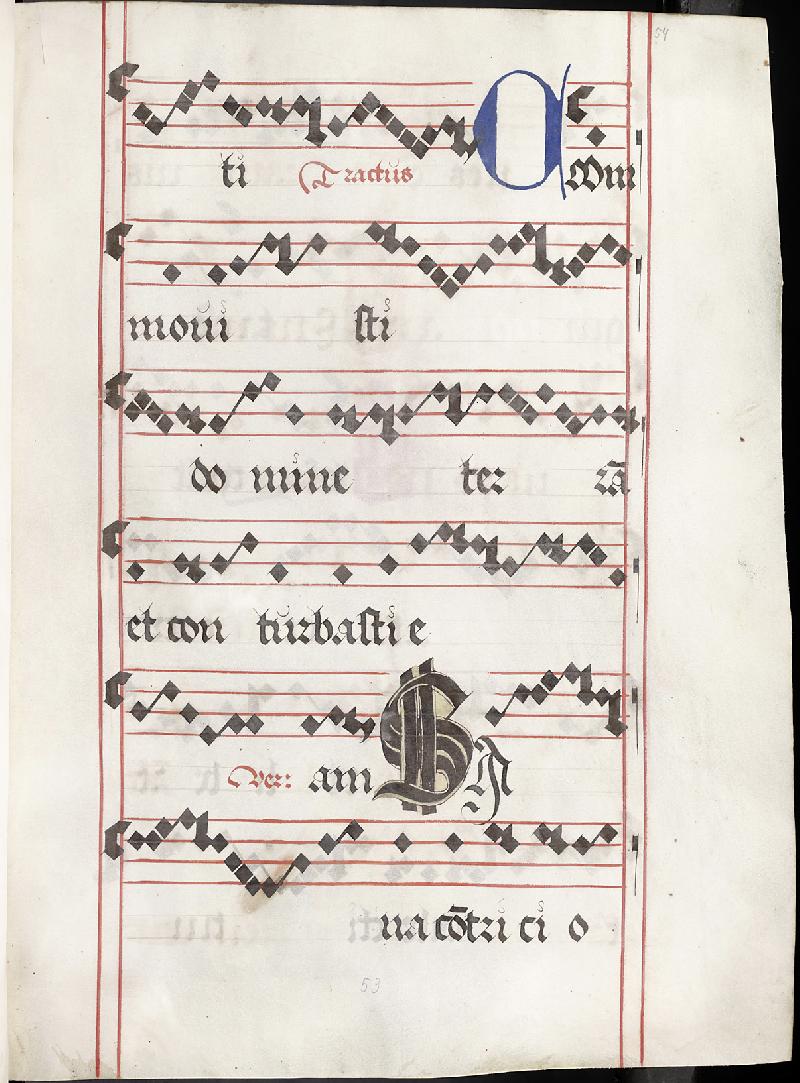 54
ti Tractus Com
moui sti
do mine ter rā
et con turbasti e
Ver: am SA
na cōtri ci o
53